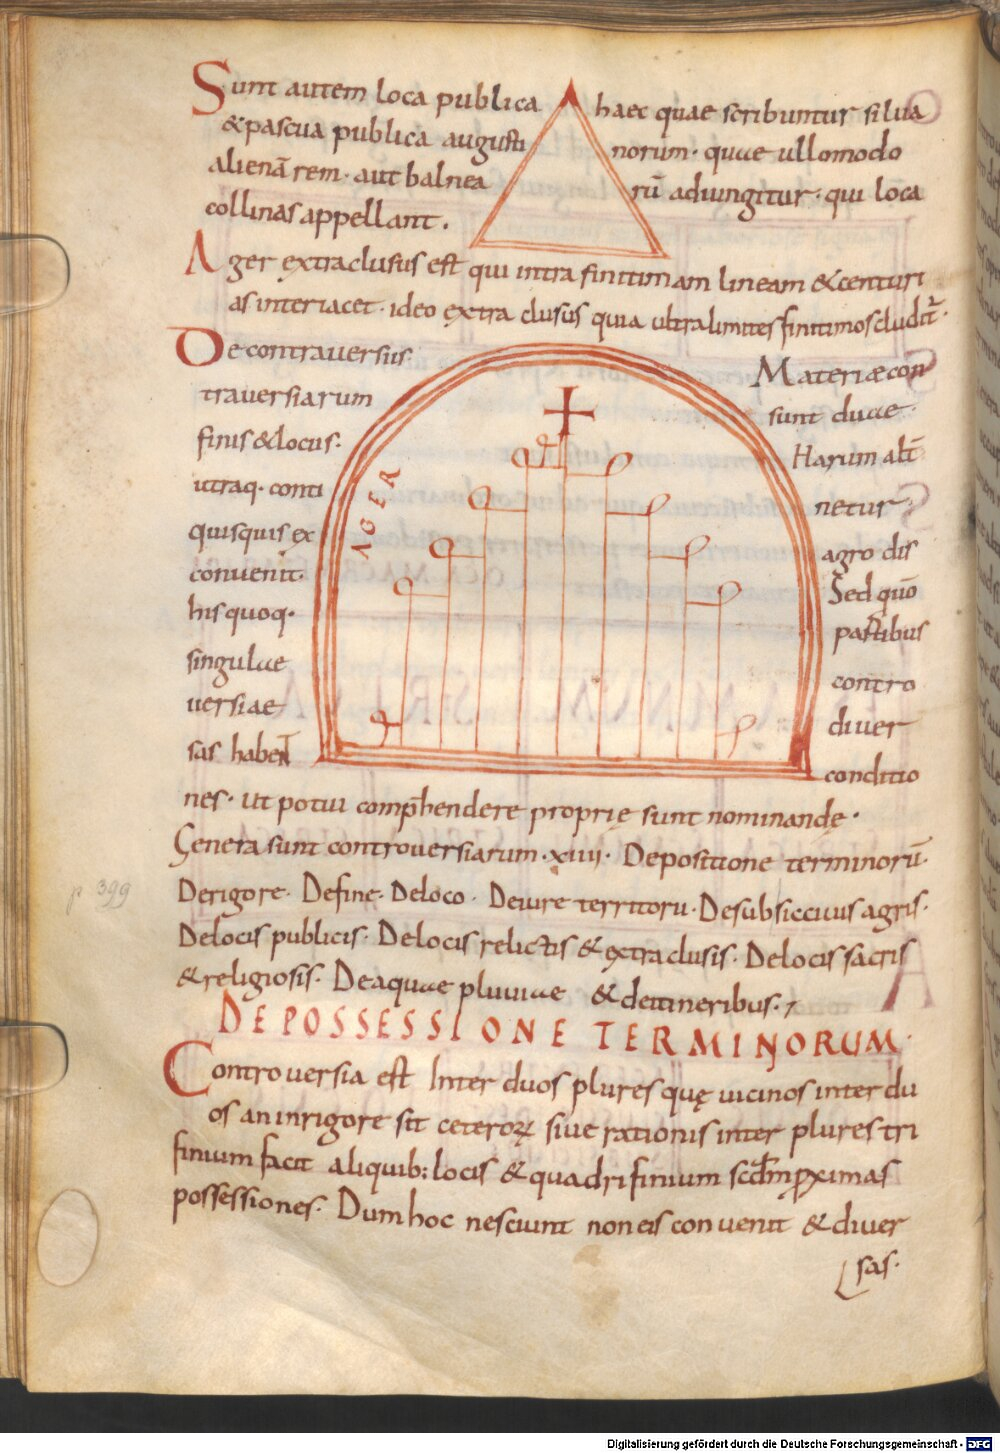 Sunt autem loca publica haec quae scribuntur silua
& pascua publica augusti norum · quae ullomodo
alienā rem · aut balnea rū adiungitur · qui loca
collinas appellant ·
Ager extraclusus est qui intra finitimam lineam & centuri
as interiacet · ideo extra clusus quia ultra limites finitimos cludit᷑ ·
De contraversiis Materiae con
traversiarum sunt duae ·
finis & locus · Harum alt̄
utraq· conti netur
quisquis ex agro dis
convenit · Sed quō
his quoq· partibus
singulae contro
versiae diver
sas habent conditio
AGER
nes · ut potui comp̄hendere proprię sunt nominandę ·
Genera sunt controversiarum · xiiii · De positione terminorū ·
De rigore · De fine · De loco · De iure territorii · De subsiccivis agris ·
De locis publicis · De locis relictis & extraclusis · De locis sacris
& religiosis · De aquae pluviae & de itineribus ·
p 399
DE POSSESSIONE TERMINORUM ·
Controversia est Inter duos plures quę vicinos inter du
os an in rigore sit ceteroꝝ sive rationis inter plures tri
finium facit aliquib: locis & quadrifinium scdm ꝓximas
possessiones · Dum hoc nesciunt non eis convenit & diver
sas ·
Digitalisierung gefördert durch die Deutsche Forschungsgemeinschaft - DFG